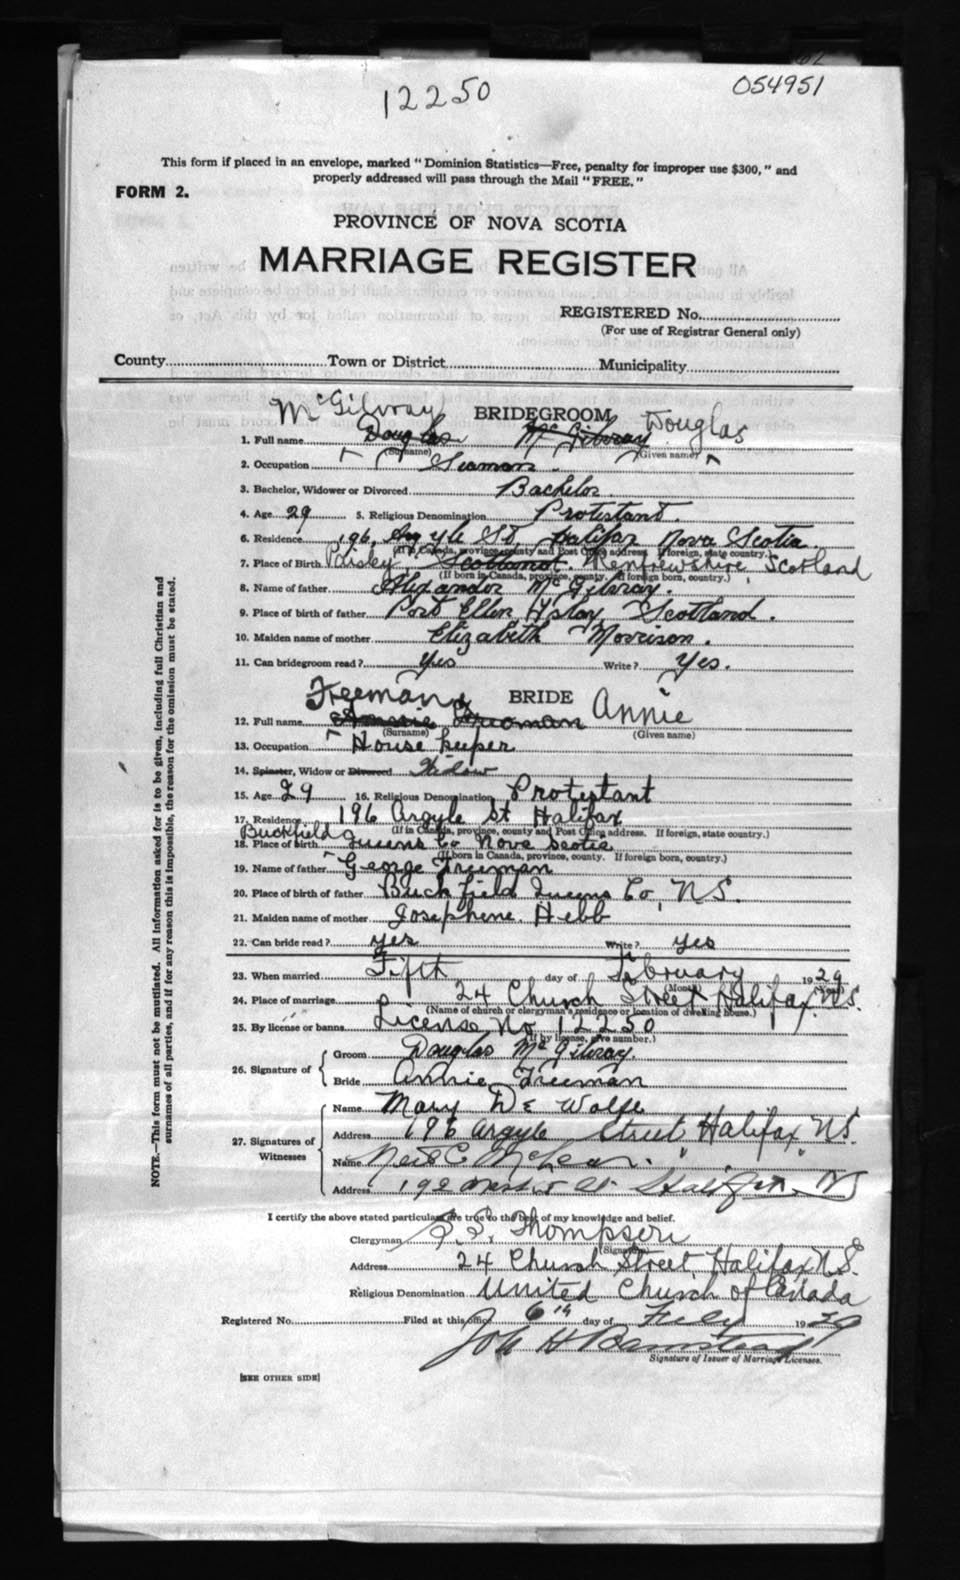 054951
12250
This form if placed in an envelope, marked "Dominion Statistics—Free, penalty for improper use $300," and
properly addressed will pass through the Mail "FREE."
FORM 2.
PROVINCE OF NOVA SCOTIA
MARRIAGE REGISTER
REGISTERED No.
(For use of Registrar General only)
County Town or District Municipality
McGilvray BRIDEGROOM Douglas
1. Full name Douglas McGilvray
(Surname) (Given name)
2. Occupation Seaman
3. Bachelor, Widower or Divorced Bachelor.
4. Age 29 5. Religious Denomination Protestant.
6. Residence 196, Argyle St, Halifax Nova Scotia
(If in Canada, province, county and Post Office address. If foreign, state country.)
7. Place of Birth Paisley, Scotland. Renfrewshire Scotland
(If born in Canada, province, county. If foreign born, country.)
8. Name of father Alexander McGilvray.
9. Place of birth of father Port Ellen, Islay Scotland.
10. Maiden name of mother Elizabeth Morrison.
11. Can bridegroom read? Yes Write? Yes.
Freeman BRIDE Annie
12. Full name Annie Freeman
(Surname) (Given name)
13. Occupation House keeper
14. Spinster, Widow or Divorced Widow
15. Age 29 16. Religious Denomination Protestant
17. Residence 196 Argyle St Halifax
(If in Canada, province, county and Post Office address. If foreign, state country.)
Buckfield
18. Place of birth Queens Co Nova Scotia
(If born in Canada, province, county. If foreign born, country.)
19. Name of father George Freeman
20. Place of birth of father Buckfield Queens Co, N.S.
21. Maiden name of mother Josephine Hebb
22. Can bride read? yes Write? yes
23. When married Fifth day of February 1929
(Month) (Year)
24. Place of marriage 24 Church Street Halifax N.S.
(Name of church or clergyman's residence or location of dwelling house.)
25. By license or banns License No 12250
(If by license, give number.)
26. Signature of Groom Douglas McGilvray.
Bride Annie Freeman
27. Signatures of Witnesses
Name Mary De Wolfe
Address 196 Argyle Street Halifax N.S.
Name Neil C McLean.
Address Halifax NS
I certify the above stated particulars are true to the best of my knowledge and belief.
Clergyman Thompson
(Signature)
Address 24 Church Street, Halifax N.S.
Religious Denomination United Church of Canada
Registered No. Filed at this office 6th day of Feby 1929
Signature of Issuer of Marriage Licenses.
[SEE OTHER SIDE]
NOTE.—This form must not be mutilated. All information asked for is to be given, including full Christian and
surnames of all parties, and if for any reason this is impossible, the reason for the omission must be stated.